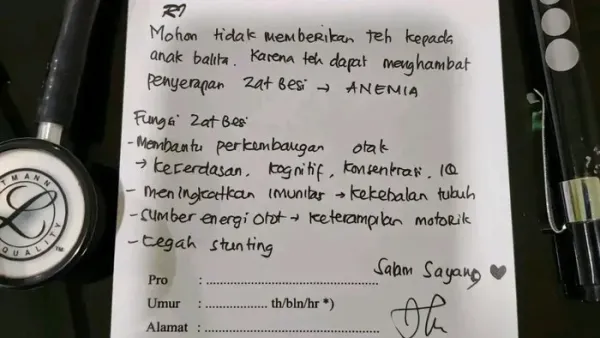 R/
Mohon tidak memberikan teh kepada
anak balita. Karena teh dapat menghambat
penyerapan Zat Besi → ANEMIA
Fungsi Zat Besi
- Membantu perkembangan otak
→ kecerdasan, kognitif, konsentrasi, IQ
- meningkatkan imunitas → kekebalan tubuh
- Sumber energi otot → keterampilan motorik
- Cegah stunting
Salam Sayang ♥
Pro : ..................................................
Umur : .................. th/bln/hr *)
Alamat : ..................................................
TTMANN
QUALITY